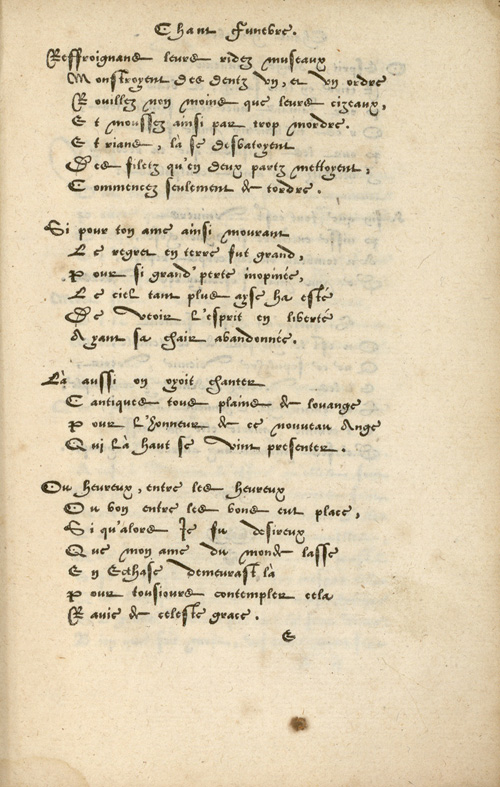 Chant Funebre.
Reffroignans leurs ridez museaux
Monstroyent des dentz un, et un ordre
Rouillez non moins que leurs cizeaux,
Et moussez ainsi par trop mordre.
Et rians, là se desbatoyent
Des filetz qu'en deux partz mettoyent,
Commencez seulement de tordre.
Si pour ton ame ainsi mourant
Le regret en terre fut grand,
Pour si grand' perte inopinée,
Le ciel tant plus ayse ha esté
De veoir l'esprit en liberté
Ayant sa chair abandonnée.
Là aussi on oyoit chanter
Cantiques tous plains de louange
Pour l'honneur de ce nouveau Ange
Qui là haut se vint presenter.
Ou heureux, entre les heureux
Ou bon entre les bons eut place,
Si qu'alors Je fu desireux
Que mon ame du monde lasse
En Ecthase demeurast là
Pour tousiours contempler cela
Ravie de celeste grace.
E